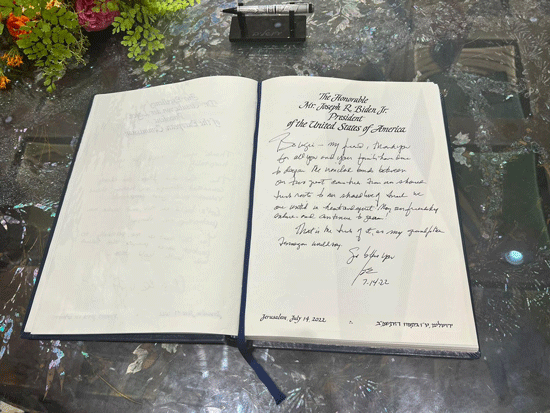 The Honorable
Mr. Joseph R. Biden Jr.
President
of the United States of America
my friend, thank you
for all you and your family have done
to deepen the ironclad bonds between
our two great countries. From our shared
roots to our shared love of we
are united in heart and spirit. May our friendship
endure and continue to grow.
That is the of it, as my grandfather
Finnegan would say.
God bless you
Joe
7-14-22
Jerusalem, July 14, 2022
ירושלים, ט״ו בתמוז ה׳תשפ״ב